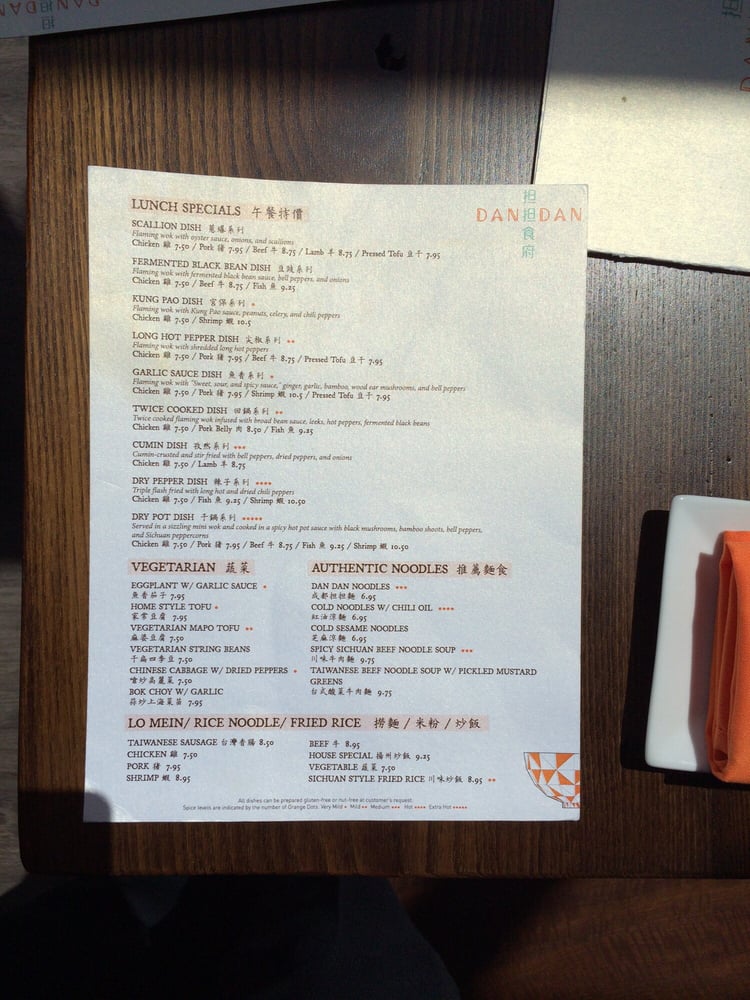 DANDAN
担担
LUNCH SPECIALS 午餐特價
担担食府
DAN DAN
SCALLION DISH 蔥爆系列
Flaming wok with oyster sauce, onions, and scallions
Chicken 雞 7.50 / Pork 豬 7.95 / Beef 牛 8.75 / Lamb 羊 8.75 / Pressed Tofu 豆干 7.95
FERMENTED BLACK BEAN DISH 豆豉系列
Flaming wok with fermented black bean sauce, bell peppers, and onions
Chicken 雞 7.50 / Beef 牛 8.75 / Fish 魚 9.25
KUNG PAO DISH 宮保系列
Flaming wok with Kung Pao sauce, peanuts, celery, and chili peppers
Chicken 雞 7.50 / Shrimp 蝦 10.5
LONG HOT PEPPER DISH 尖椒系列
Flaming wok with shredded long hot peppers
Chicken 雞 7.50 / Pork 豬 7.95 / Beef 牛 8.75 / Pressed Tofu 豆干 7.95
GARLIC SAUCE DISH 魚香系列
Flaming wok with "Sweet, sour, and spicy sauce," ginger, garlic, bamboo, wood ear mushrooms, and bell peppers
Chicken 雞 7.50 / Pork 豬 7.95 / Shrimp 蝦 10.5 / Pressed Tofu 豆干 7.95
TWICE COOKED DISH 回鍋系列
Twice cooked flaming wok infused with broad bean sauce, leeks, hot peppers, fermented black beans
Chicken 雞 7.50 / Pork Belly 肉 8.50 / Fish 魚 9.25
CUMIN DISH 孜然系列
Cumin-crusted and stir fried with bell peppers, dried peppers, and onions
Chicken 雞 7.50 / Lamb 羊 8.75
DRY PEPPER DISH 辣子系列
Triple flash fried with long hot and dried chili peppers
Chicken 雞 7.50 / Fish 魚 9.25 / Shrimp 蝦 10.50
DRY POT DISH 干鍋系列
Served in a sizzling mini wok and cooked in a spicy hot pot sauce with black mushrooms, bamboo shoots, bell peppers,
and Sichuan peppercorns
Chicken 雞 7.50 / Pork 豬 7.95 / Beef 牛 8.75 / Fish 魚 9.25 / Shrimp 蝦 10.50
VEGETARIAN 蔬菜
EGGPLANT W/ GARLIC SAUCE
魚香茄子 7.95
HOME STYLE TOFU
家常豆腐 7.95
VEGETARIAN MAPO TOFU
麻婆豆腐 7.50
VEGETARIAN STRING BEANS
干扁四季豆 7.50
CHINESE CABBAGE W/ DRIED PEPPERS
嗆炒高麗菜 7.50
BOK CHOY W/ GARLIC
蒜炒上海菜苗 7.95
AUTHENTIC NOODLES 推薦麵食
DAN DAN NOODLES
成都担担麵 6.95
COLD NOODLES W/ CHILI OIL
紅油涼麵 6.95
COLD SESAME NOODLES
芝麻涼麵 6.95
SPICY SICHUAN BEEF NOODLE SOUP
川味牛肉麵 9.75
TAIWANESE BEEF NOODLE SOUP W/ PICKLED MUSTARD
GREENS
台式酸菜牛肉麵 9.75
LO MEIN/ RICE NOODLE/ FRIED RICE 撈麵 / 米粉 / 炒飯
TAIWANESE SAUSAGE 台灣香腸 8.50
CHICKEN 雞 7.50
PORK 豬 7.95
SHRIMP 蝦 8.95
BEEF 牛 8.95
HOUSE SPECIAL 揚州炒飯 9.25
VEGETABLE 蔬菜 7.50
SICHUAN STYLE FRIED RICE 川味炒飯 8.95
All dishes can be prepared gluten-free or nut-free at customer's request.
Spice levels are indicated by the number of Orange Dots. Very Mild • Mild •• Medium ••• Hot •••• Extra Hot •••••